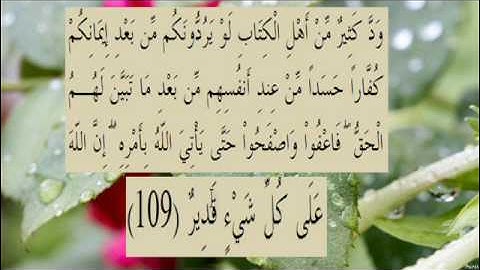 وَدَّ كَثِيرٌ مِّنْ أَهْلِ الْكِتَابِ لَوْ يَرُدُّونَكُم مِّن بَعْدِ إِيمَانِكُمْ
كُفَّاراً حَسَداً مِّنْ عِندِ أَنفُسِهِم مِّن بَعْدِ مَا تَبَيَّنَ لَهُمُ
الْحَقُّ ۖ فَاعْفُوا وَاصْفَحُوا حَتَّى يَأْتِيَ اللَّهُ بِأَمْرِهِ ۗ إِنَّ اللَّهَ
عَلَى كُلِّ شَيْءٍ قَدِيرٌ (109)